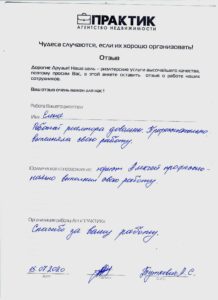 ПРАКТИК
АГЕНТСТВО НЕДВИЖИМОСТИ
Чудеса случаются, если их хорошо организовать!
Отзыв
Дорогие Друзья! Наша цель - риэлтерские услуги высочайшего качества,
поэтому просим Вас, в этой анкете оставить отзыв о работе наших
сотрудников.
Ваш отзыв очень важен для нас!
Работа Вашего риэлтора
Имя Елена
Работой риелтора довольна. Профессионально
выполнила свою работу.
Юридическое сопровождение юрист Алексей профессио-
нально выполнил свою работу
Организация работы АН «ПРАКТИК»
Спасибо за вашу работу.
15.07.2020